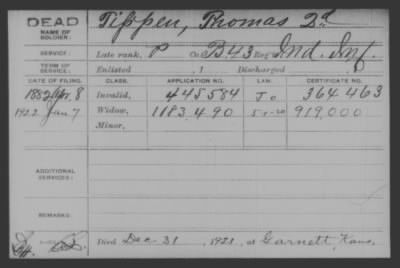 DEAD
NAME OF SOLDIER: Tippen, Thomas 2d
SERVICE: Late rank, P Co. B, 43 Reg't Ind. Inf.
TERM OF SERVICE: Enlisted , 1 Discharged
DATE OF FILING. CLASS. APPLICATION NO. LAW. CERTIFICATE NO.
1882 Apr. 8 Invalid, 445584 364463
1922 Jan 7 Widow, 1183490 5-1-20 919,000
Minor,
ADDITIONAL SERVICES:
REMARKS:
Died Dec 31, 1921, at Garnett, Kans.